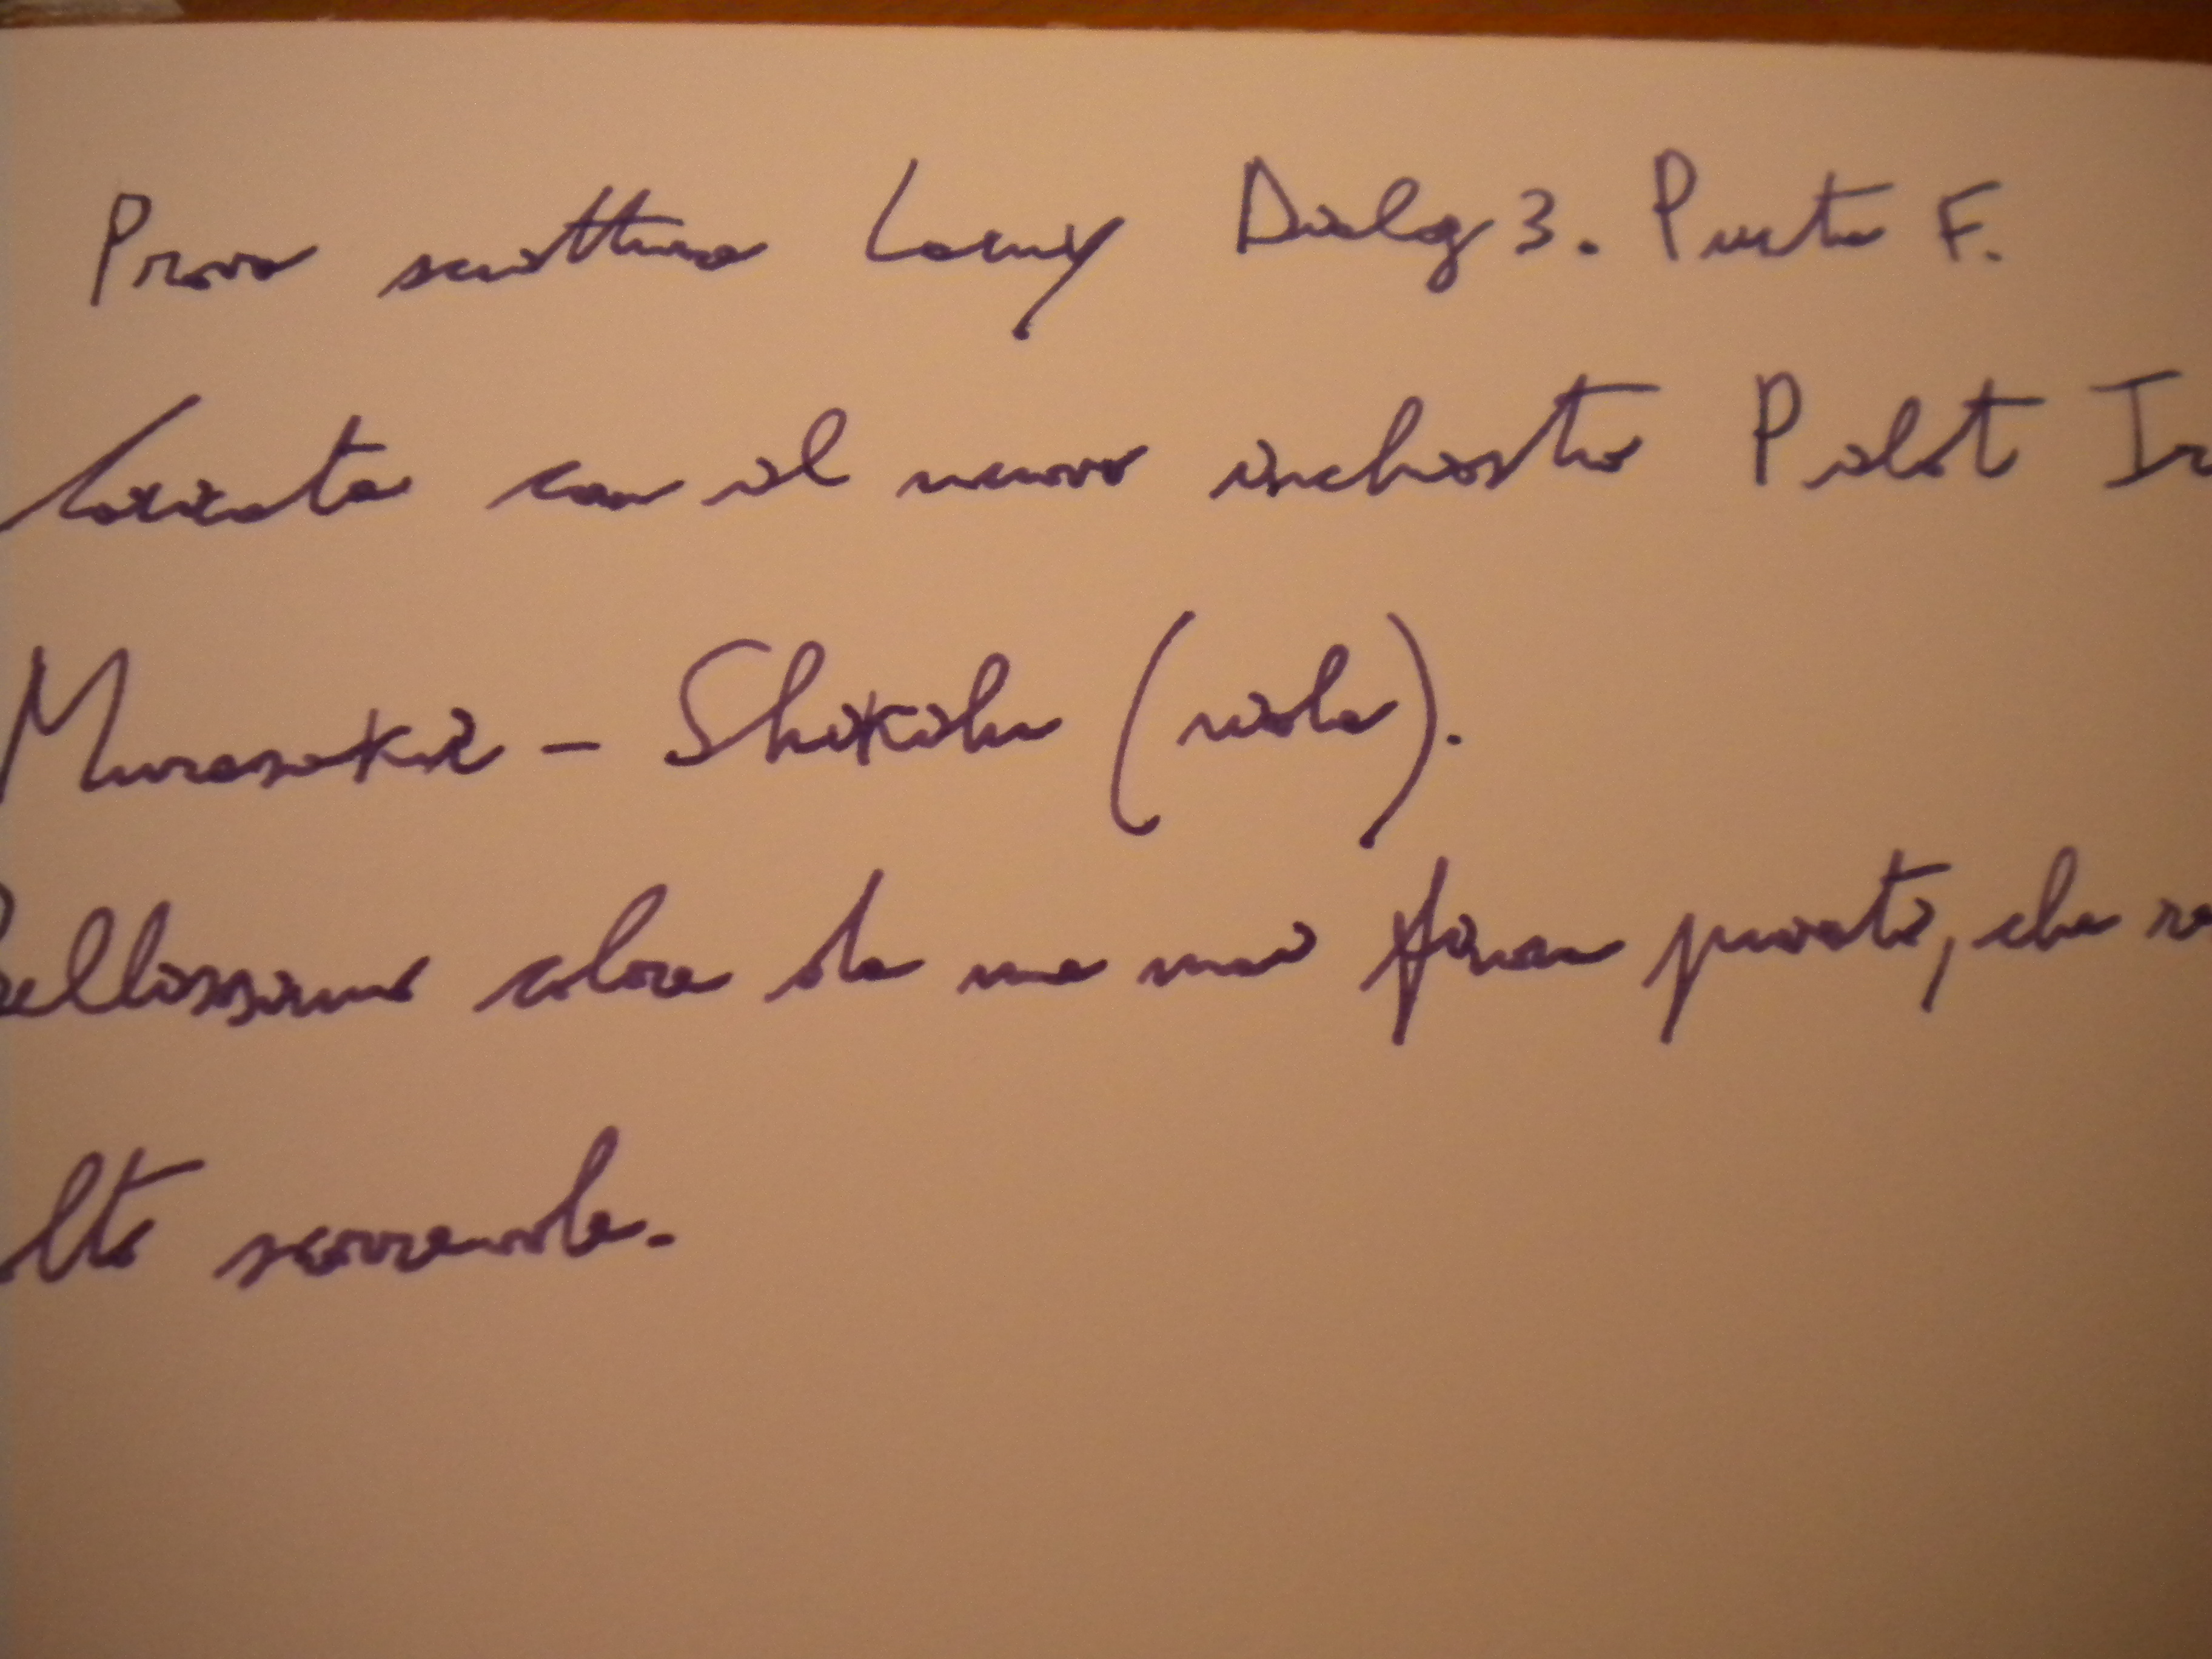 Prova scrittura Lamy Dialog 3. Punta F.
Caricata con il nuovo inchiostro Pilot Ir
Murasaki - Shikibu (viola).
Bellissimo colore da me mai finora provato, che re
lto scorrevole.